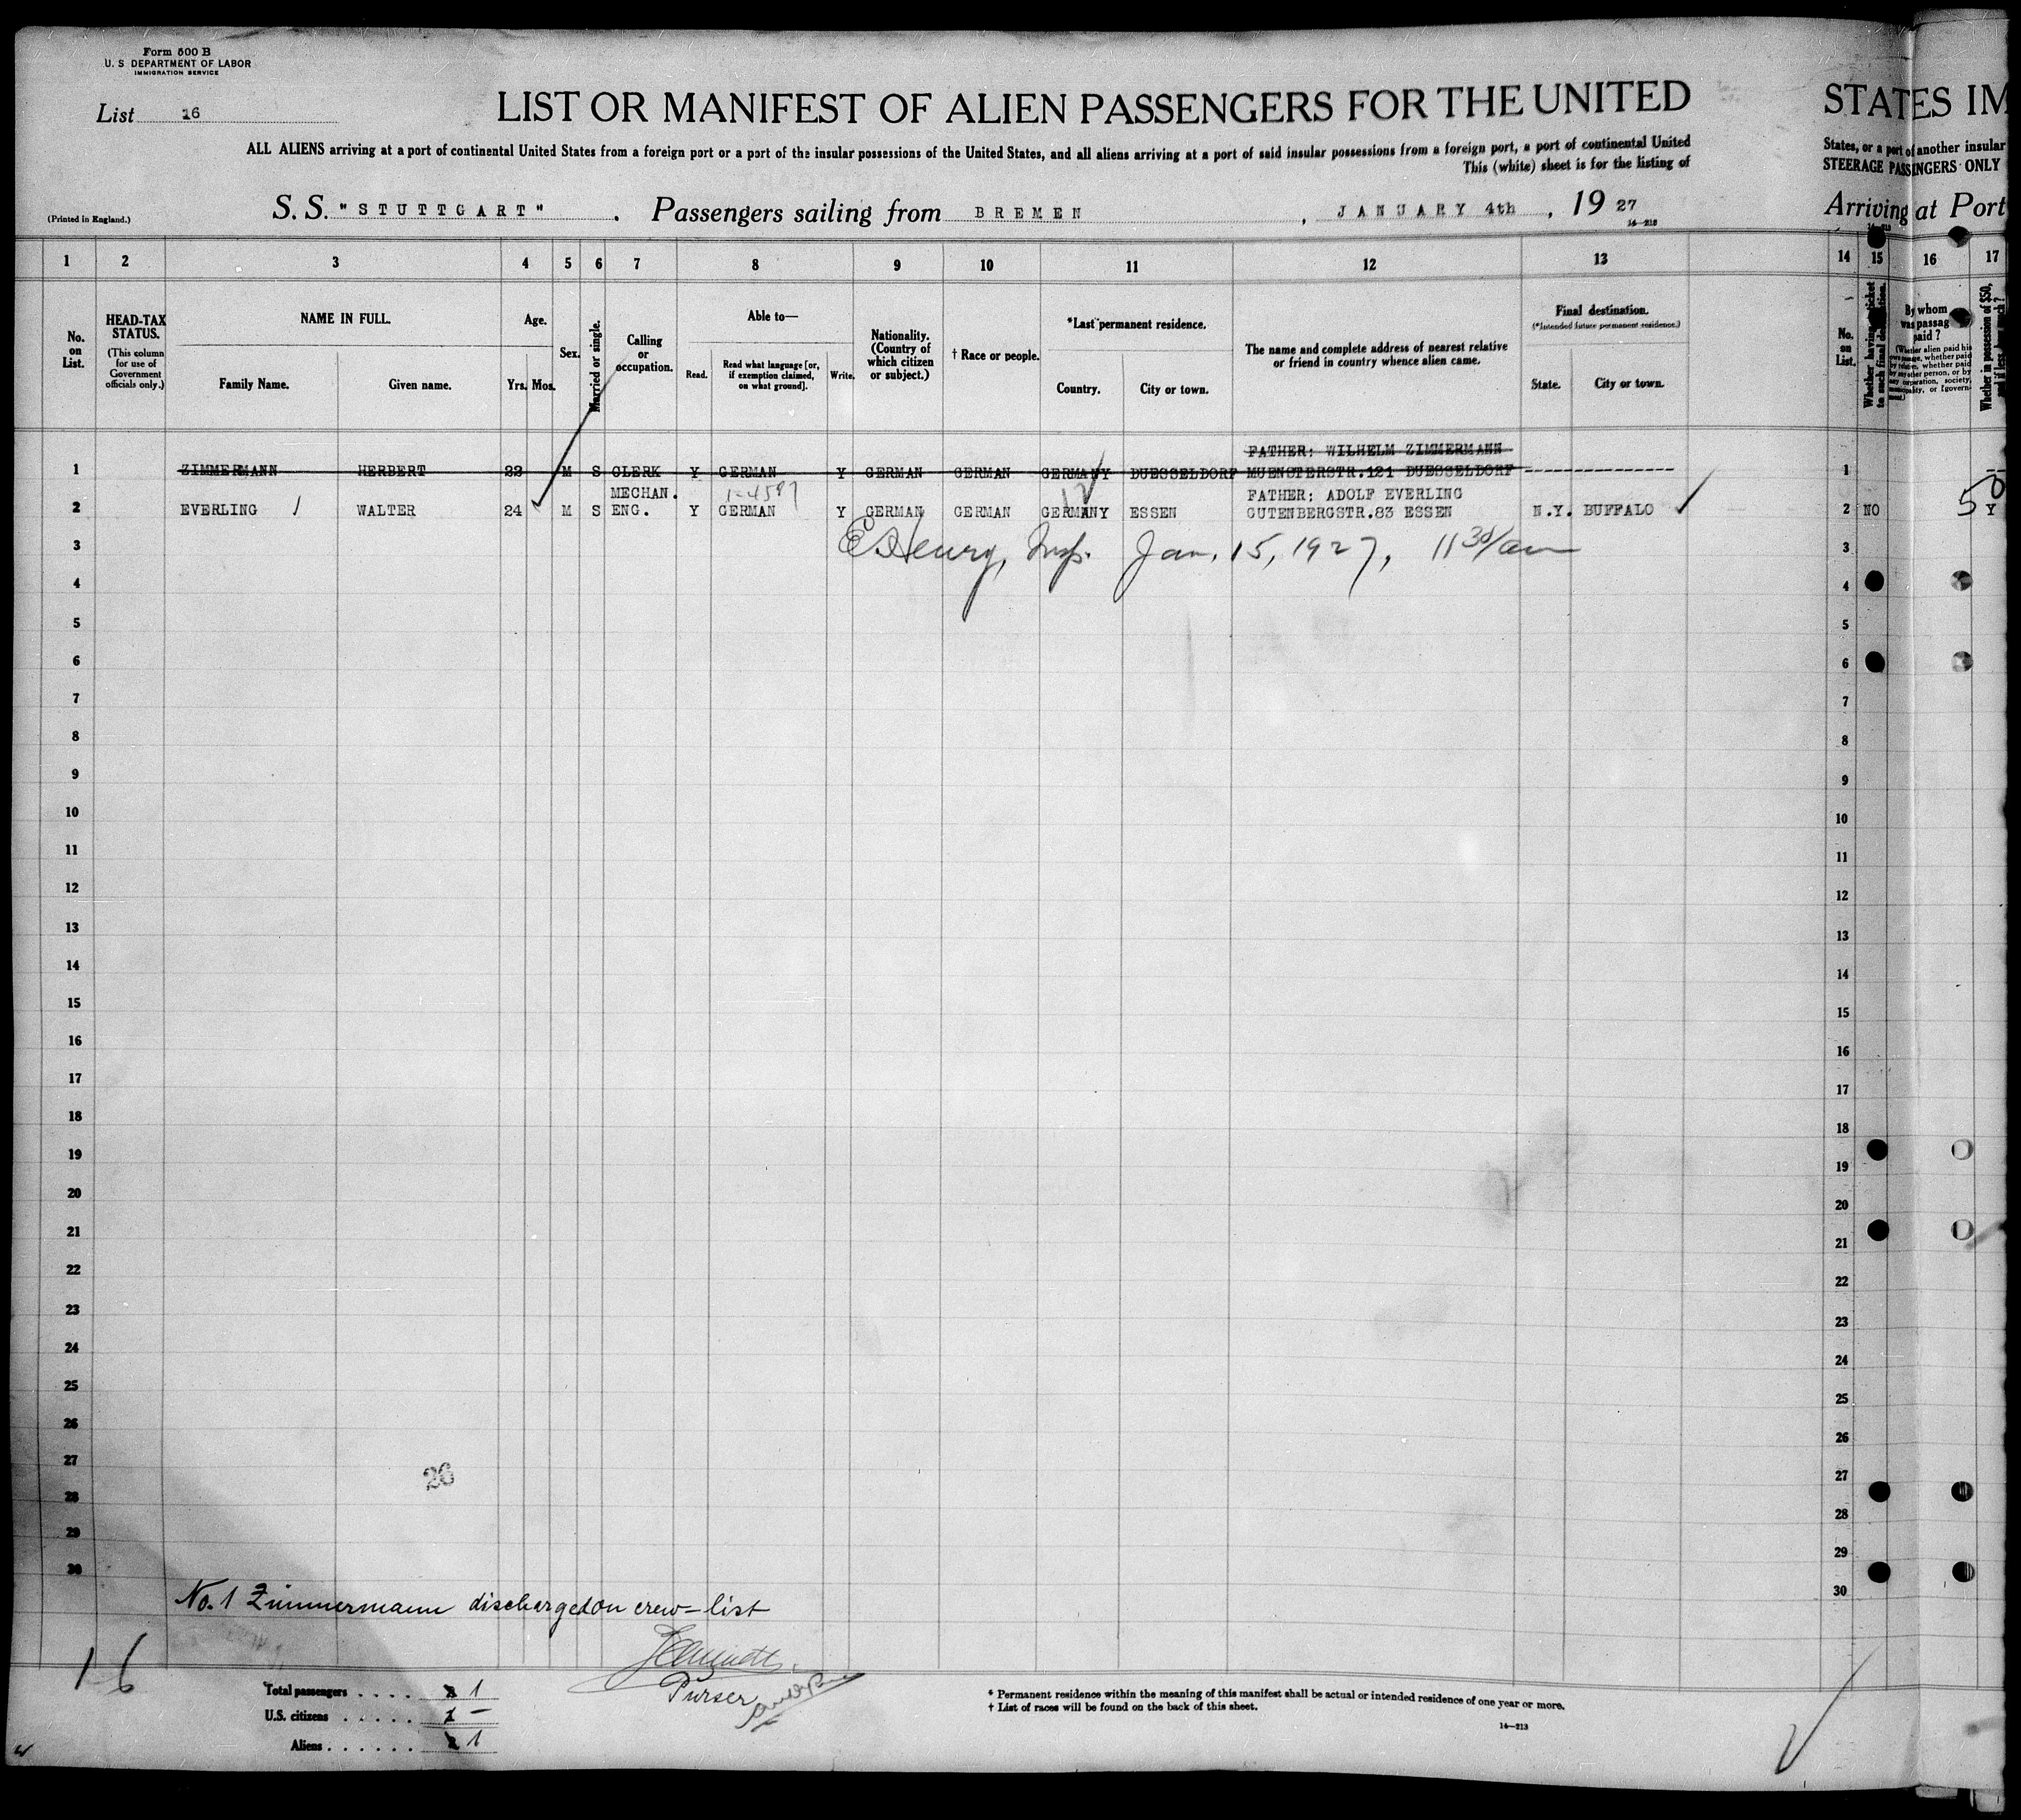 Form 500 B
U. S DEPARTMENT OF LABOR
IMMIGRATION SERVICE
List 16
LIST OR MANIFEST OF ALIEN PASSENGERS FOR THE UNITED
STATES IM
ALL ALIENS arriving at a port of continental United States from a foreign port or a port of the insular possessions of the United States, and all aliens arriving at a port of said insular possessions from a foreign port, a port of continental United
States, or a port of another insular
This (white) sheet is for the listing of
STEERAGE PASSENGERS ONLY
(Printed in England.)
S. S. "STUTTGART" . Passengers sailing from BREMEN , JANUARY 4th , 19 27
Arriving at Port
14—213
1 2 3 4 5 6 7 8 9 10 11 12 13 14 15 16 17
No. on List.
HEAD-TAX STATUS.
(This column for use of Government officials only.)
NAME IN FULL.
Family Name. Given name.
Age.
Yrs. Mos.
Sex.
Married or single.
Calling or occupation.
Able to—
Read. Read what language [or, if exemption claimed, on what ground]. Write.
Nationality. (Country of which citizen or subject.)
† Race or people.
*Last permanent residence.
Country. City or town.
The name and complete address of nearest relative or friend in country whence alien came.
Final destination.
(*Intended future permanent residence.)
State. City or town.
No. on List.
Whether having a ticket to such final destination.
By whom was passage paid ?
(Whether alien paid his own passage, whether paid by relative, whether paid by any other person, or by any corporation, society, municipality, or [govern-ment.)
Whether in possession of $50,
FATHER: WILHELM ZIMMERMANN
1 ZIMMERMANN HERBERT 22 M S CLERK Y GERMAN Y GERMAN GERMAN GERMANY DUESSELDORF MUENSTERSTR.121 DUESSELDORF 1
MECHAN. 1-4587 12 FATHER; ADOLF EVERLING
2 EVERLING 1 WALTER 24 M S ENG. Y GERMAN Y GERMAN GERMAN GERMANY ESSEN GUTENBERGSTR.83 ESSEN N.Y. BUFFALO 2 NO 50 Y
3 Henry, Insp. Jan. 15, 1927, 11 30/am 3
4 4
5 5
6 6
7 7
8 8
9 9
10 10
11 11
12 12
13 13
14 14
15 15
16 16
17 17
18 18
19 19
20 20
21 21
22 22
23 23
24 24
25 25
26 26
27 26 27
28 28
29 29
30 30
No. 1 Zimmermann discharged on crew-list
16
Purser
Total passengers . . . . 2 1
U.S. citizens . . . . . —
Aliens . . . . . . 2 1
* Permanent residence within the meaning of this manifest shall be actual or intended residence of one year or more.
† List of races will be found on the back of this sheet.
14—213